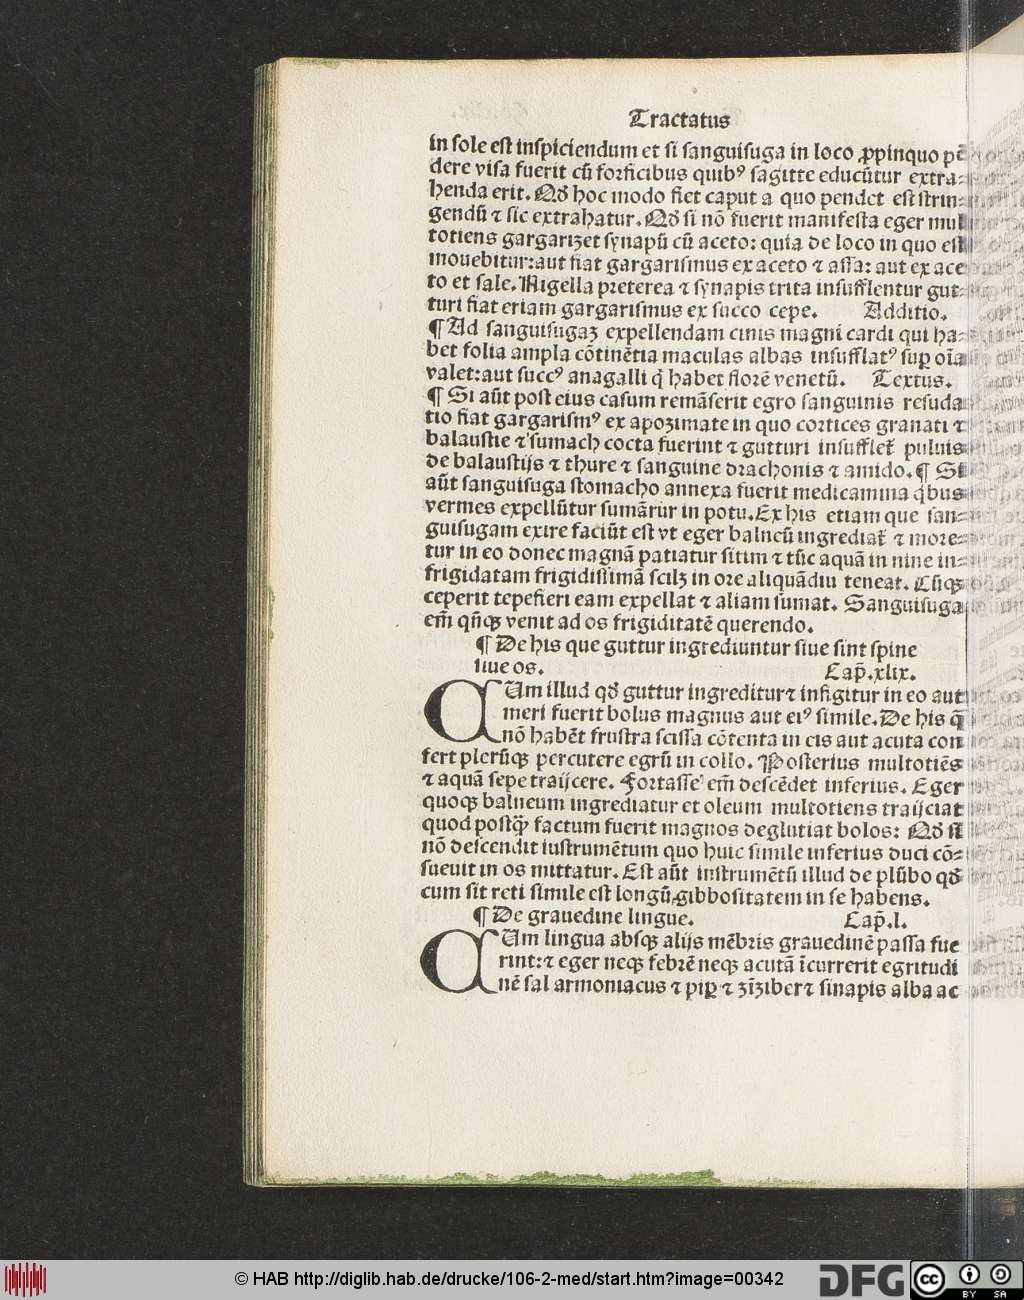 Tractatus
in sole est inspiciendum et si sanguisuga in loco ꝓpinquo pē
dere visa fuerit cū forficibus quibꝰ sagitte educūtur extra⸗
henda erit. Qđ hoc modo fiet caput a quo pendet est strin⸗
gendū ⁊ sic extrahatur. Qđ si nō fuerit manifesta eger mul
totiens gargarizet synapū cū aceto: quia de loco in quo est
mouebitur: aut fiat gargarismus ex aceto ⁊ assa: aut ex ace
to et sale. Nigella preterea ⁊ synapis trita insufflentur gut⸗
turi fiat eriam gargarismus ex succo cepe. Additio.
¶ Ad sanguisugaꝫ expellendam cinis magni cardi qui ha⸗
bet folia ampla cōtinētia maculas albas insufflatꝰ suꝑ oīa
valet: aut succꝰ anagalli q̄ habet florē venetū. Textus.
¶ Si aūt post eius casum remāserit egro sanguinis resuda
tio fiat gargarismꝰ ex apozimate in quo cortices granati ⁊
balaustie ⁊ sumach cocta fuerint ⁊ gutturi insufflet̄ puluis
de balaustijs ⁊ thure ⁊ sanguine drachonis ⁊ amido. ¶ Si
aūt sanguisuga stomacho annexa fuerit medicamina q̇bus
vermes expellūtur sumātur in potu. Ex his etiam que san⸗
guisugam exire faciūt est vt eger balneū ingrediat̄ ⁊ more⸗
tur in eo donec magnā patiatur sitim ⁊ tūc aquā in niue in⸗
frigidatam frigidissimā scilꝫ in ore aliquādiu teneat. Cūqꝫ
ceperit tepefieri eam expellat ⁊ aliam sumat. Sanguisuga
em̄ qn̄qꝫ venit ad os frigiditatē querendo.
¶ De his que guttur ingrediuntur siue sint spine
siue os. Cap̄. xlix.
CUm illud qđ guttur ingreditur ⁊ infigitur in eo aut
meri fuerit bolus magnus aut eiꝰ simile. De his q̄
nō habēt frustra scissa cōtenta in eis aut acuta con
fert plerūqꝫ percutere egrū in collo. Posterius multotiēs
⁊ aquā sepe traijcere. Fortasse em̄ descēdet inferius. Eger
quoqꝫ balneum ingrediatur et oleum multotiens traijciat
quod postq̄ factum fuerit magnos deglutiat bolos: Qđ si
nō descendit iustrumētum quo huic simile inferius duci cō⸗
sueuit in os mittatur. Est aūt instrumētū illud de plūbo qđ
cum sit reti simile est longū gibbositatem in se habens.
¶ De grauedine lingue. Cap̄. l.
CUm lingua absqꝫ alijs mēbris grauedinē passa fue
rint: ⁊ eger neqꝫ febrē neqꝫ acutā īcurrerit egritudi
nē sal armoniacus ⁊ piꝑ ⁊ zīziber ⁊ sinapis alba ac
© HAB http://diglib.hab.de/drucke/106-2-med/start.htm?image=00342
DFG
cc BY SA